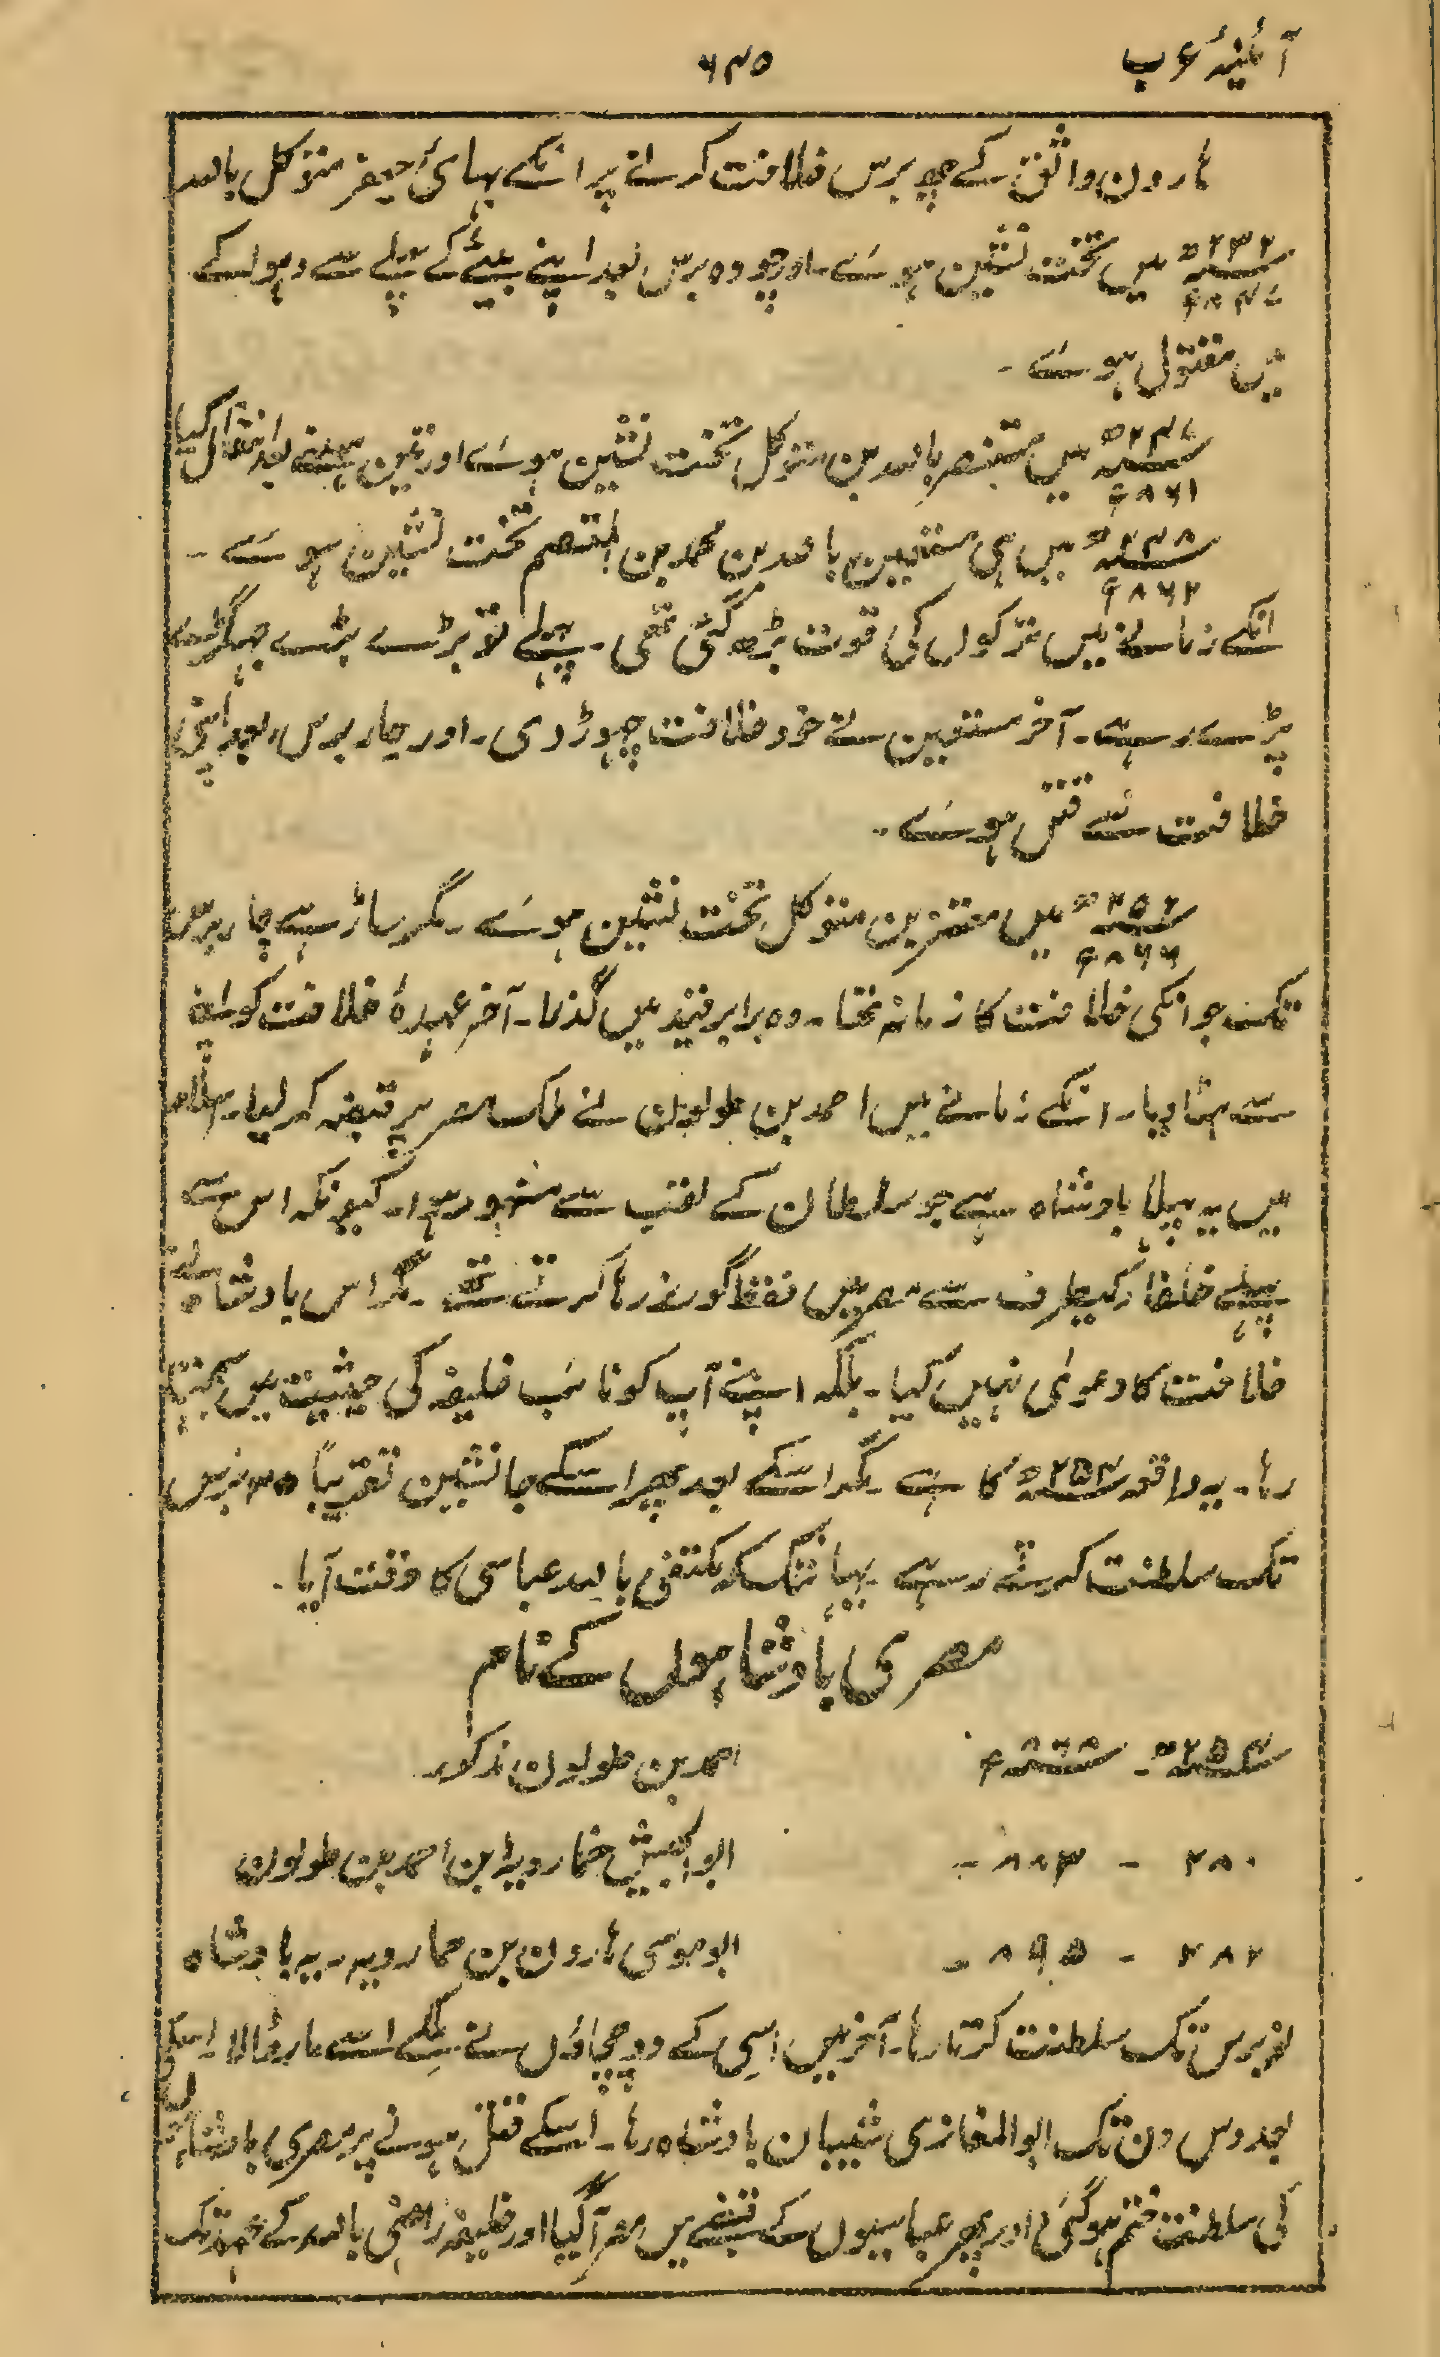 آئینۂ عرب
۶۴۵
ہارون واثق کے چھ برس خلافت کرنے پر انکے بہائی جعفر متوکل باللہ
۲۳۲ھ ۸۴۷ء میں تخت نشین ہوئے۔ اور چودہ برس بعد اپنے بیٹے کے پہلے سے دہوکے
میں مقتول ہوئے۔
۲۴۷ھ ۸۶۱ء میں متنصر باللہ بن متوکل تخت نشین ہوئے اور تین مہینے بعد انتقال کیا
۲۴۸ھ ۸۶۲ء میں ہی مستعین باللہ بن محمد بن المتصم تخت نشین ہوئے۔
انکے زمانے میں ترکوں کی قوت بڑھ گئی تھی۔ پہلے تو بڑے بڑے جہگڑے
پڑے رہے۔ آخر مستعین نے خود خلافت چہوڑ دی۔ اور چار برس بعد اپنی
خلافت سے قتل ہوئے۔
۲۵۲ھ ۸۶۶ء میں معتز بن متوکل تخت نشین ہوئے۔ مگر ساڑہے چار برس
تک جو انکی خلافت کا زمانہ تھا۔ وہ برابر قید میں گذرا۔ آخر عہدۂ خلافت کو اپنے
سے ہٹا دیا۔ انکے زمانے میں احمد بن طولون نے ملک مصر پر قبضہ کر لیا۔ اسلام
میں یہ پہلا بادشاہ ہے جو سلطان کے لقب سے مشہور ہوا۔ کیونکہ اس سے
پہلے خلفاء کیطرف سے مصر میں فقط گورنر رہا کرتے تھے۔ مگر اس بادشاہ نے
خلافت کا دعویٰ نہیں کیا۔ بلکہ اپنے آپ کو نائب خلیفہ کی حیثیت میں سمجہتا
رہا۔ یہ واقعہ ۲۵۴ھ کا ہے۔ مگر اسکے بعد پھر اسکے جانشین تقریباً ۳۵ برس
تک سلطنت کرتے رہے۔ یہانتک کہ مکتفی باللہ عباسی کا وقت آیا۔
مصری بادشاہوں کے نام
۲۵۴ھ - ۸۶۸ء احمد بن طولون مذکور
۲۸۰ - ۸۸۳ - ابو الجیش خمارویہ ابن احمد بن طولون
۲۸۲ - ۸۹۵ - ابو موسی ہارون بن خمارویہ۔ یہ بادشاہ
نو برس تک سلطنت کرتا رہا۔ آخر میں اسی کے دو چچاؤں نے ملکے اسے مار ڈالا۔ اسکے
بعد دس دن تک ابو المغازی شیبان بادشاہ رہا۔ اسکے قتل ہونے پر مصری بادشاہوں
کی سلطنت ختم ہوگئی اور پھر عباسیوں کے قبضے میں مصر آگیا اور خلیفہ راضی باللہ کے عہد تک